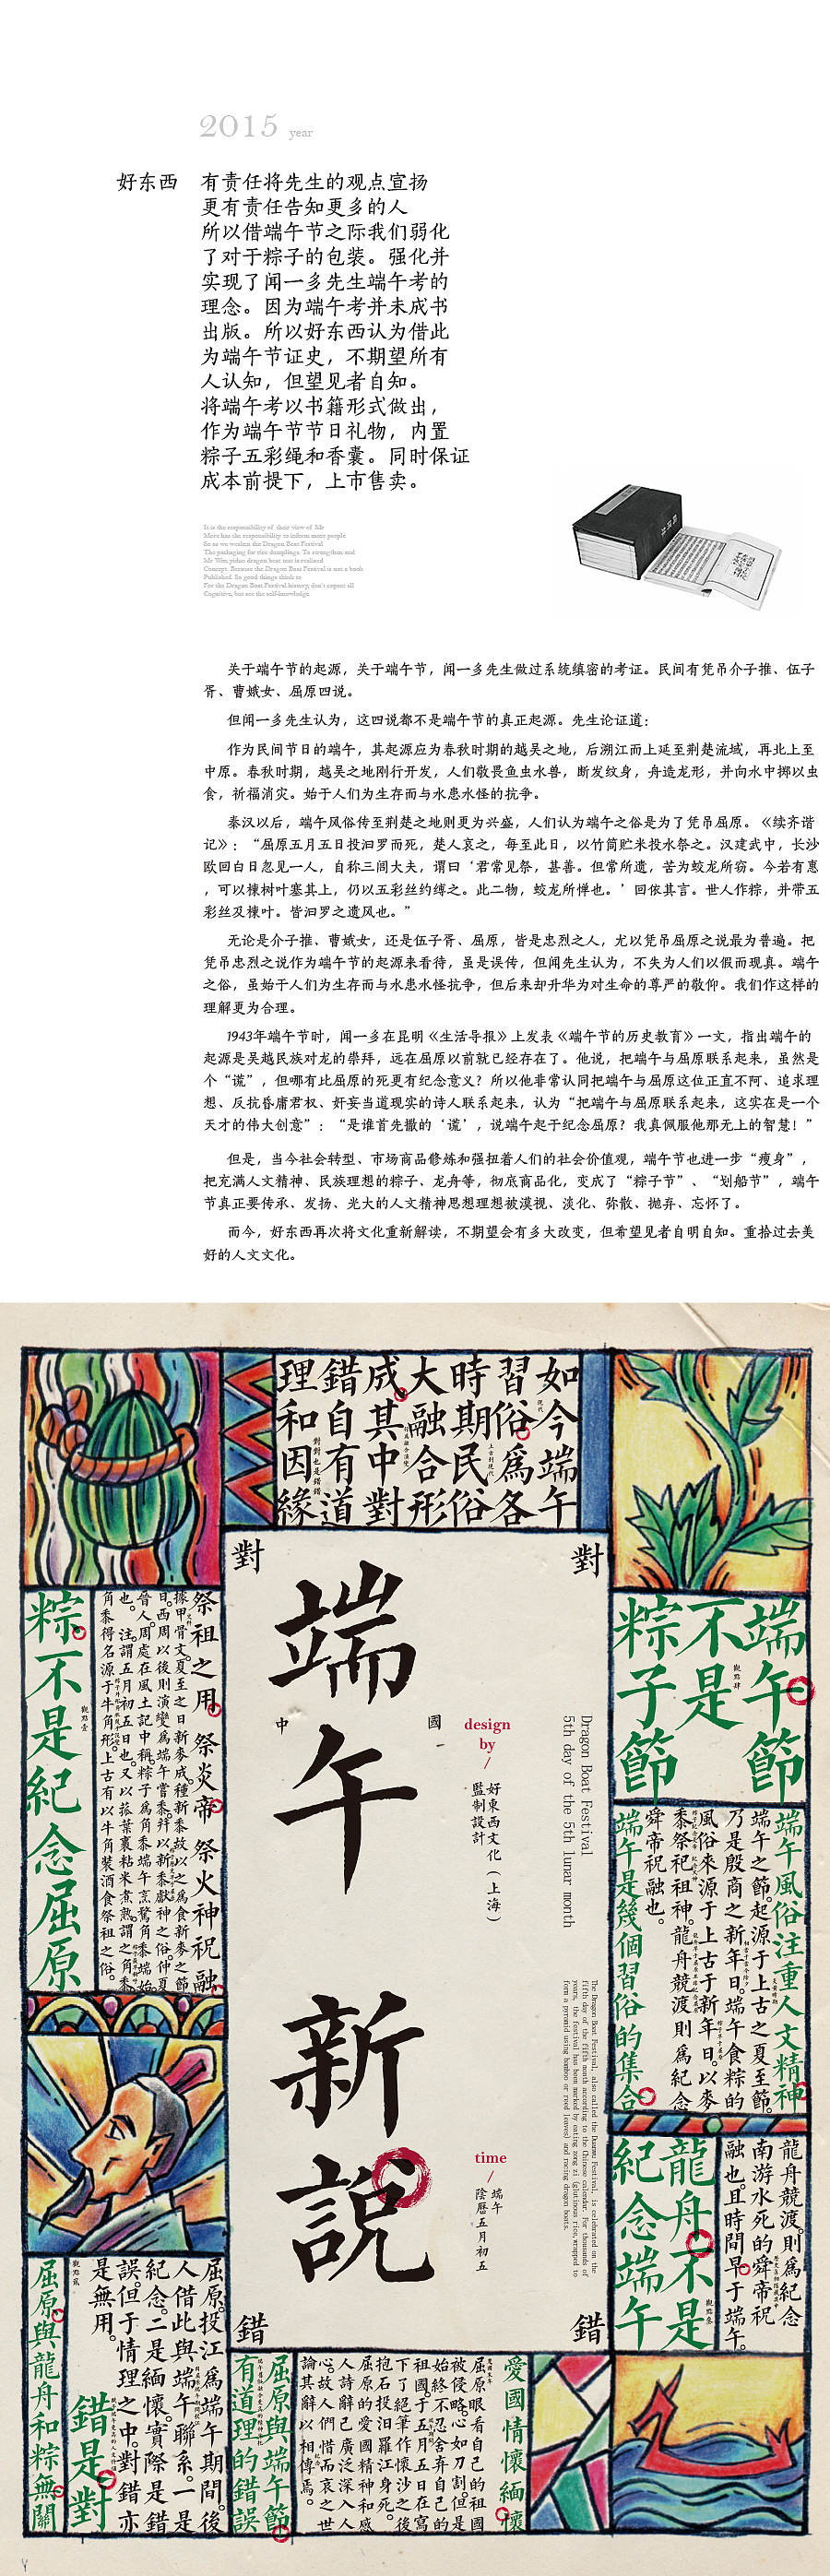 2015 year
好东西
有责任将先生的观点宣扬
更有责任告知更多的人
所以借端午节之际我们弱化
了对于粽子的包装。强化并
实现了闻一多先生端午考的
理念。因为端午考并未成书
出版。所以好东西认为借此
为端午节证史，不期望所有
人认知，但望见者自知。
将端午考以书籍形式做出，
作为端午节节日礼物，内置
粽子五彩绳和香囊。同时保证
成本前提下，上市售卖。
It is the responsibility of their view of Mr
More has the responsibility to inform more people
So as we weaken the Dragon Boat Festival
The packaging for rice dumplings. To strengthen and
Mr Wen yiduo dragon boat test is realized
Concept. Because the Dragon Boat Festival is not a book
Published. So good things think to
For the Dragon Boat Festival history, don't expect all
Cognitive, but see the self-knowledge.
关于端午节的起源，关于端午节，闻一多先生做过系统缜密的考证。民间有凭吊介子推、伍子
胥、曹娥女、屈原四说。
但闻一多先生认为，这四说都不是端午节的真正起源。先生论证道：
作为民间节日的端午，其起源应为春秋时期的越吴之地，后溯江而上延至荆楚流域，再北上至
中原。春秋时期，越吴之地刚行开发，人们敬畏鱼虫水兽，断发纹身，舟造龙形，并向水中掷以虫
食，祈福消灾。始于人们为生存而与水患水怪的抗争。
秦汉以后，端午风俗传至荆楚之地则更为兴盛，人们认为端午之俗是为了凭吊屈原。《续齐谐
记》：“屈原五月五日投汨罗而死，楚人哀之，每至此日，以竹筒贮米投水祭之。汉建武中，长沙
欧回白日忽见一人，自称三闾大夫，谓曰‘君常见祭，甚善。但常所遗，苦为蛟龙所窃。今若有惠
，可以楝树叶塞其上，仍以五彩丝约缚之。此二物，蛟龙所惮也。’回依其言。世人作粽，并带五
彩丝及楝叶。皆汨罗之遗风也。”
无论是介子推、曹娥女，还是伍子胥、屈原，皆是忠烈之人，尤以凭吊屈原之说最为普遍。把
凭吊忠烈之说作为端午节的起源来看待，虽是误传，但闻先生认为，不失为人们以假而现真。端午
之俗，虽始于人们为生存而与水患水怪抗争，但后来却升华为对生命的尊严的敬仰。我们作这样的
理解更为合理。
1943年端午节时，闻一多在昆明《生活导报》上发表《端午节的历史教育》一文，指出端午的
起源是吴越民族对龙的崇拜，远在屈原以前就已经存在了。他说，把端午与屈原联系起来，虽然是
个“谎”，但哪有比屈原的死更有纪念意义？所以他非常认同把端午与屈原这位正直不阿、追求理
想、反抗昏庸君权、奸妄当道现实的诗人联系起来，认为“把端午与屈原联系起来，这实在是一个
天才的伟大创意”：“是谁首先撒的‘谎’，说端午起于纪念屈原？我真佩服他那无上的智慧！”
但是，当今社会转型、市场商品修炼和强扭着人们的社会价值观，端午节也进一步“瘦身”，
把充满人文精神、民族理想的粽子、龙舟等，彻底商品化，变成了“粽子节”、“划船节”，端午
节真正要传承、发扬、光大的人文精神思想理想被漠视、淡化、弥散、抛弃、忘怀了。
而今，好东西再次将文化重新解读，不期望会有多大改变，但希望见者自明自知。重拾过去美
好的人文文化。
如今端午
習俗為各
時期民俗
大融合形
成其中對
錯自有道
理和因緣
對
對
端午
新說
中
國
錯
錯
design
by
/
好東西文化（上海）
監制設計
Dragon Boat Festival
5th day of the 5th lunar month
The Dragon Boat Festival, also called the Duanwu Festival, is celebrated on the
fifth day of the fifth month according to the Chinese calendar. For thousands of
years, the festival has been marked by eating zong zi (glutinous rice, wrapped to
form a pyramid using bamboo or reed leaves) and racing dragon boats.
time
/
端午
陰曆五月初五
端午節
不是
粽子節
觀點肆
端午風俗注重人文精神
端午之節。起源于上古之夏至節。
乃是殷商之新年日。端午食粽的
風俗來源于上古于新年日。以黍
黍祭祀祖神。龍舟競渡則為紀念
舜帝祝融也。
端午是幾個習俗的集合
龍舟競渡。則為紀念
南游水死的舜帝祝
融也。且時間早于端午。
龍舟不是
紀念端午
觀點叁
粽不是紀念屈原
觀點壹
祭祖之用。祭炎帝。祭火神祝融。
據甲骨文。夏至之日新麥成種新黍故以之為食新麥之節
日。西周以後則演變為端午嘗黍。并以新黍獻神之俗。仲夏
晉人周處在風土記中稱。粽子為角黍端午烹鶩角黍端始
也。注謂五月初五日也。又以菰葉裹粘米煮熟。謂之角黍。
角黍得名源于牛角形。上古有以牛角裝酒食祭祖之俗。
屈原。投江為端午期間。後
人借此與端午聯系。一是
紀念。二是緬懷。實際是錯
誤。但于情理之中。對錯亦
是無用。
錯是對
觀點貳
屈原與龍舟和粽無關
愛國情懷緬懷
屈原眼看自己的祖國
被侵略。心如刀割。但是
始終不忍舍弃自己的
祖國于五月五日在寫
下了絕筆作懷沙之後
抱石投汨羅江身死。
屈原的愛國精神和感
人詩辭已廣泛深入人
心。故人們惜而哀之世
論其辭以相傳焉。
屈原與端午節
有道理的錯誤